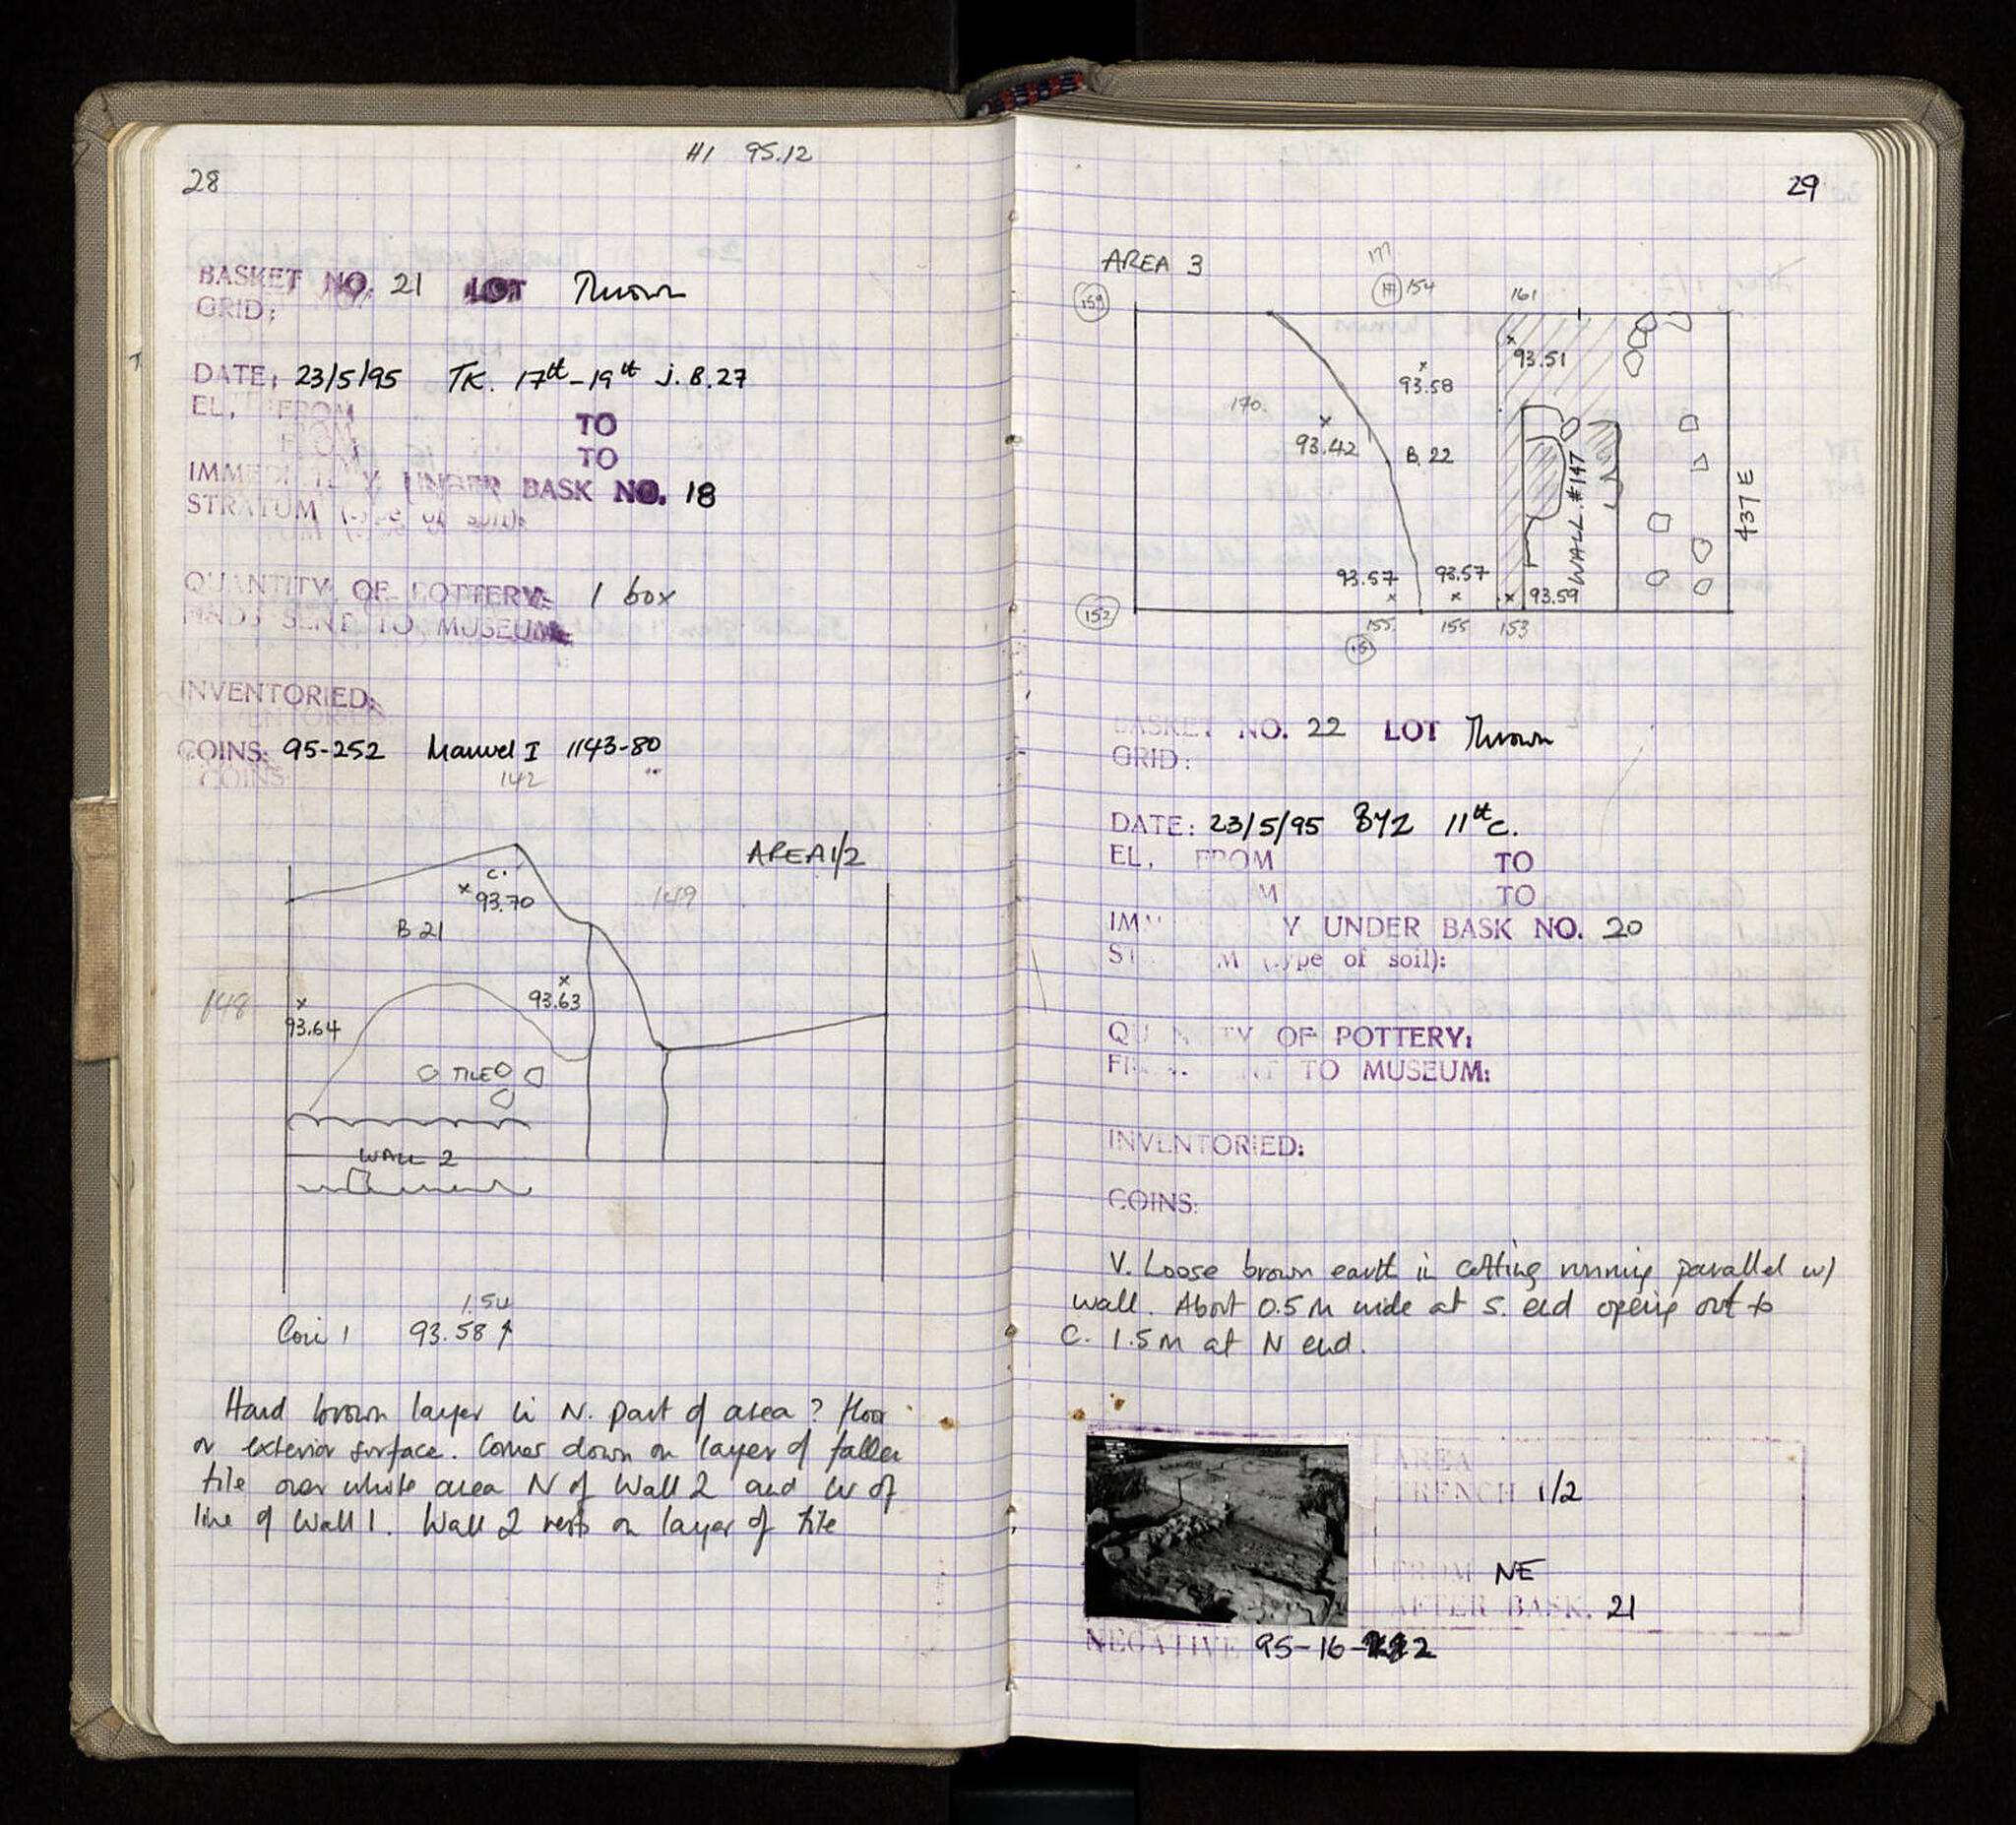 28
HI 95.12
BASKET NO. 21 LOT Thrown
GRID:
DATE: 23/5/95 TK. 17th-19th J. B. 27
EL, FROM TO
FROM TO
IMMEDI TELY UNDER BASK NO. 18
STRATUM (type of soil):
QUANTITY OF POTTERY: 1 box
FINDS SENT TO MUSEUM:
INVENTORIED:
COINS: 95-252 Manuel I 1143-80
COINS
142
AREA 1/2
C.
93.70
149
B 21
93.63
148
93.64
TILE
WALL 2
1.54
Coin 1 93.58 ↑
Hard brown layer in N. part of area? floor
or exterior surface. Comes down on layer of fallen
tile over white area N of Wall 2 and W of
line of Wall 1. Wall 2 rests on layer of tile
29
AREA 3
177
159
154
161
93.51
93.58
170.
93.42
B. 22
WALL #147
437 E
93.57
93.57
93.59
152
155
155
153
BASKET NO. 22 LOT Thrown
GRID:
DATE: 23/5/95 BYZ 11th c.
EL, FROM TO
M TO
IM Y UNDER BASK NO. 20
ST M (type of soil):
QU N TY OF POTTERY:
FI NT TO MUSEUM:
INVENTORIED:
COINS:
V. Loose brown earth in cutting running parallel w/
wall. About 0.5 m wide at S. end opening out to
C. 1.5 m at N end.
AREA
TRENCH 1/2
FROM NE
AFTER BASK. 21
NEGATIVE 95-16-2